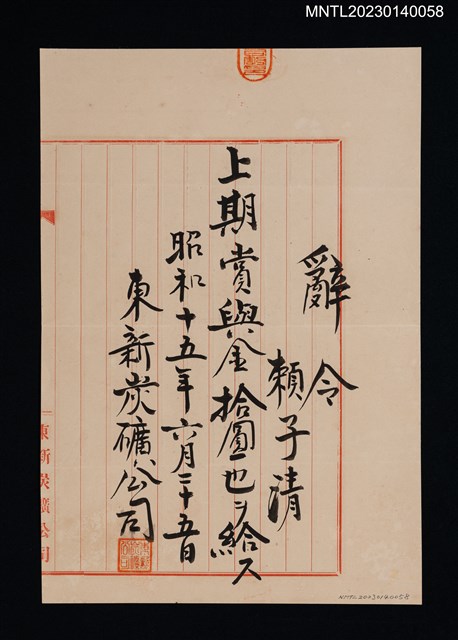 MNTL20230140058
辭令
賴子清
上期賞與金拾圓也ヲ給ス
昭和十五年六月二十五日
東新炭礦公司
東新炭礦公司
NMTL20230140058